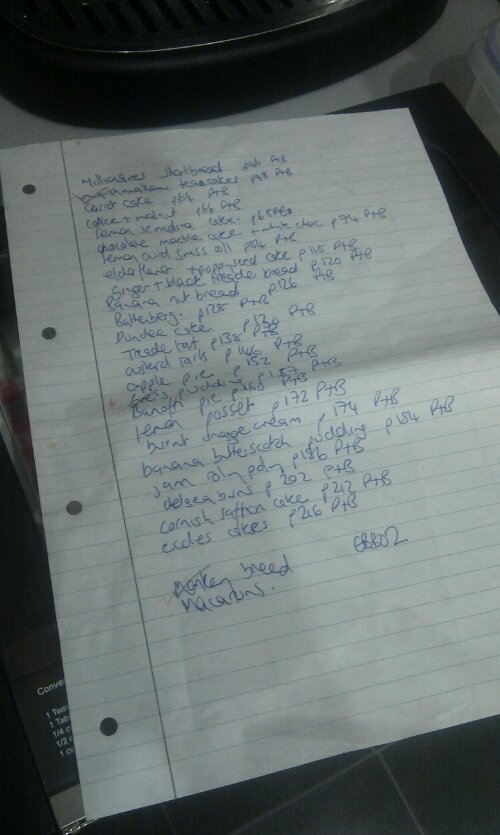 Millionaires shortbread p46 P+B
Marshmallow teacakes p48 P+B
carrot cake p64 P+B
coffee + walnut p66 P+B
lemon semolina cake. p68 P+B
chocolate marble cake + white choc p74 P+B
lemon curd swiss roll p84 P+B
elderflower + poppy seed cake p118 P+B
Ginger + black treacle bread p120 P+B
Banana nut bread p126 P+B
Battenberg. p128 P+B
Dundee cake p130
Treacle tart p138 P+B
custard tarts p146 P+B
apple pie p152 P+B
pudding P+B
Banoffi pie P+B
lemon posset p172 P+B
burnt cream p174 P+B
banana butterscotch pudding p184 P+B
jam roly poly p186 P+B
chelsea buns p202 P+B
cornish saffron cake p212 P+B
eccles cakes p216 P+B
GBBO2
Monkey bread
Macarons.
Conve
1 Teas
1 Tab
1/4 c
1/2 c
1 c